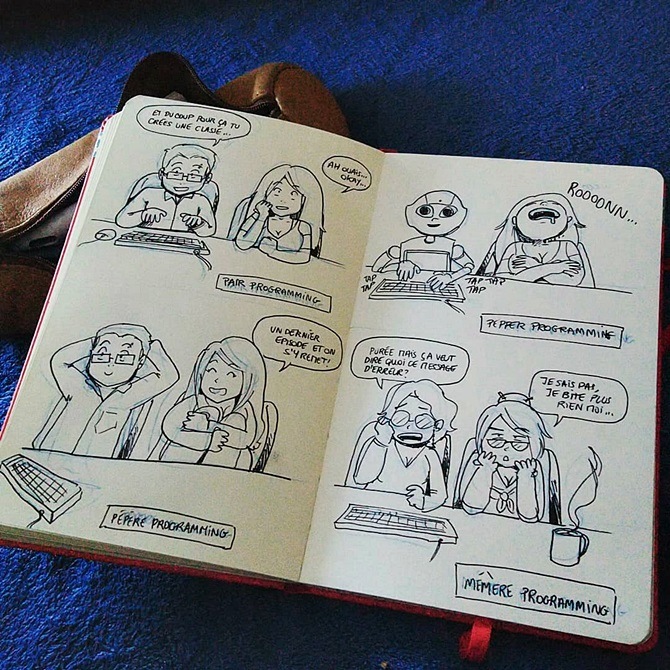 ET DU COUP POUR ÇA TU
CRÉES UNE CLASSE...
AH OUAIS...
OKAY...
PAIR PROGRAMMING
UN DERNIER
ÉPISODE ET ON
S'Y REMET!
PÉPÈRE PROGRAMMING
ROOOONN...
TAP
TAP
TAP TAP
TAP
PEPPER PROGRAMMING
PURÉE MAIS ÇA VEUT
DIRE QUOI CE MESSAGE
D'ERREUR?
JE SAIS PAS,
JE BITE PLUS
RIEN MOI...
MÉMÈRE PROGRAMMING